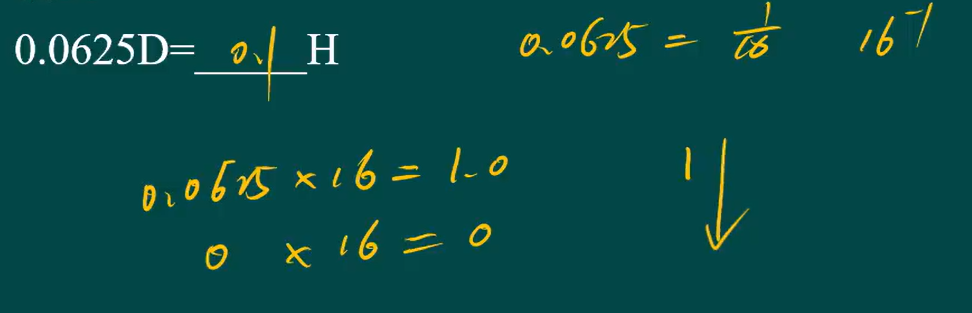 0.0625D= 0.1 H 0.0625 = 1/16 16⁻¹
0.0625 × 16 = 1.0 1
0 × 16 = 0